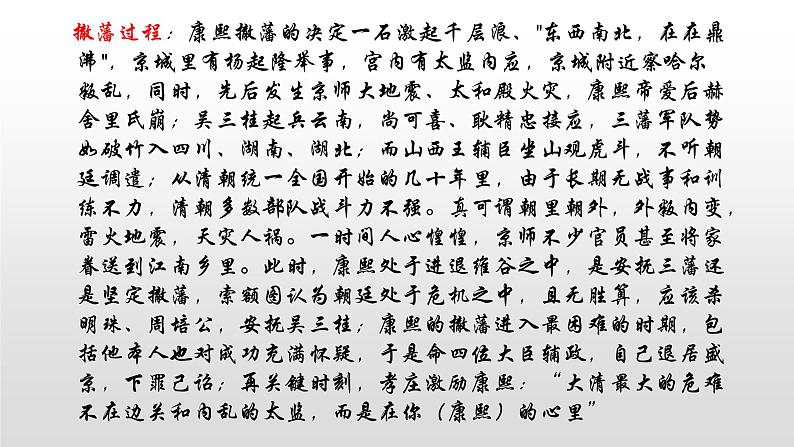 撤藩过程：康熙撤藩的决定一石激起千层浪、"东西南北，在在鼎
沸"，京城里有杨起隆举事，宫内有太监内应，京城附近察哈尔
叛乱，同时，先后发生京师大地震、太和殿火灾，康熙帝爱后赫
舍里氏崩；吴三桂起兵云南，尚可喜、耿精忠接应，三藩军队势
如破竹入四川、湖南、湖北；而山西王辅臣坐山观虎斗，不听朝
廷调遣；从清朝统一全国开始的几十年里，由于长期无战事和训
练不力，清朝多数部队战斗力不强。真可谓朝里朝外，外叛内变，
雷火地震，天灾人祸。一时间人心惶惶，京师不少官员甚至将家
眷送到江南乡里。此时，康熙处于进退维谷之中，是安抚三藩还
是坚定撤藩，索额图认为朝廷处于危机之中，且无胜算，应该杀
明珠、周培公，安抚吴三桂；康熙的撤藩进入最困难的时期，包
括他本人也对成功充满怀疑，于是命四位大臣辅政，自己退居盛
京，下罪己诏；再关键时刻，孝庄激励康熙：“大清最大的危难
不在边关和内乱的太监，而是在你（康熙）的心里”